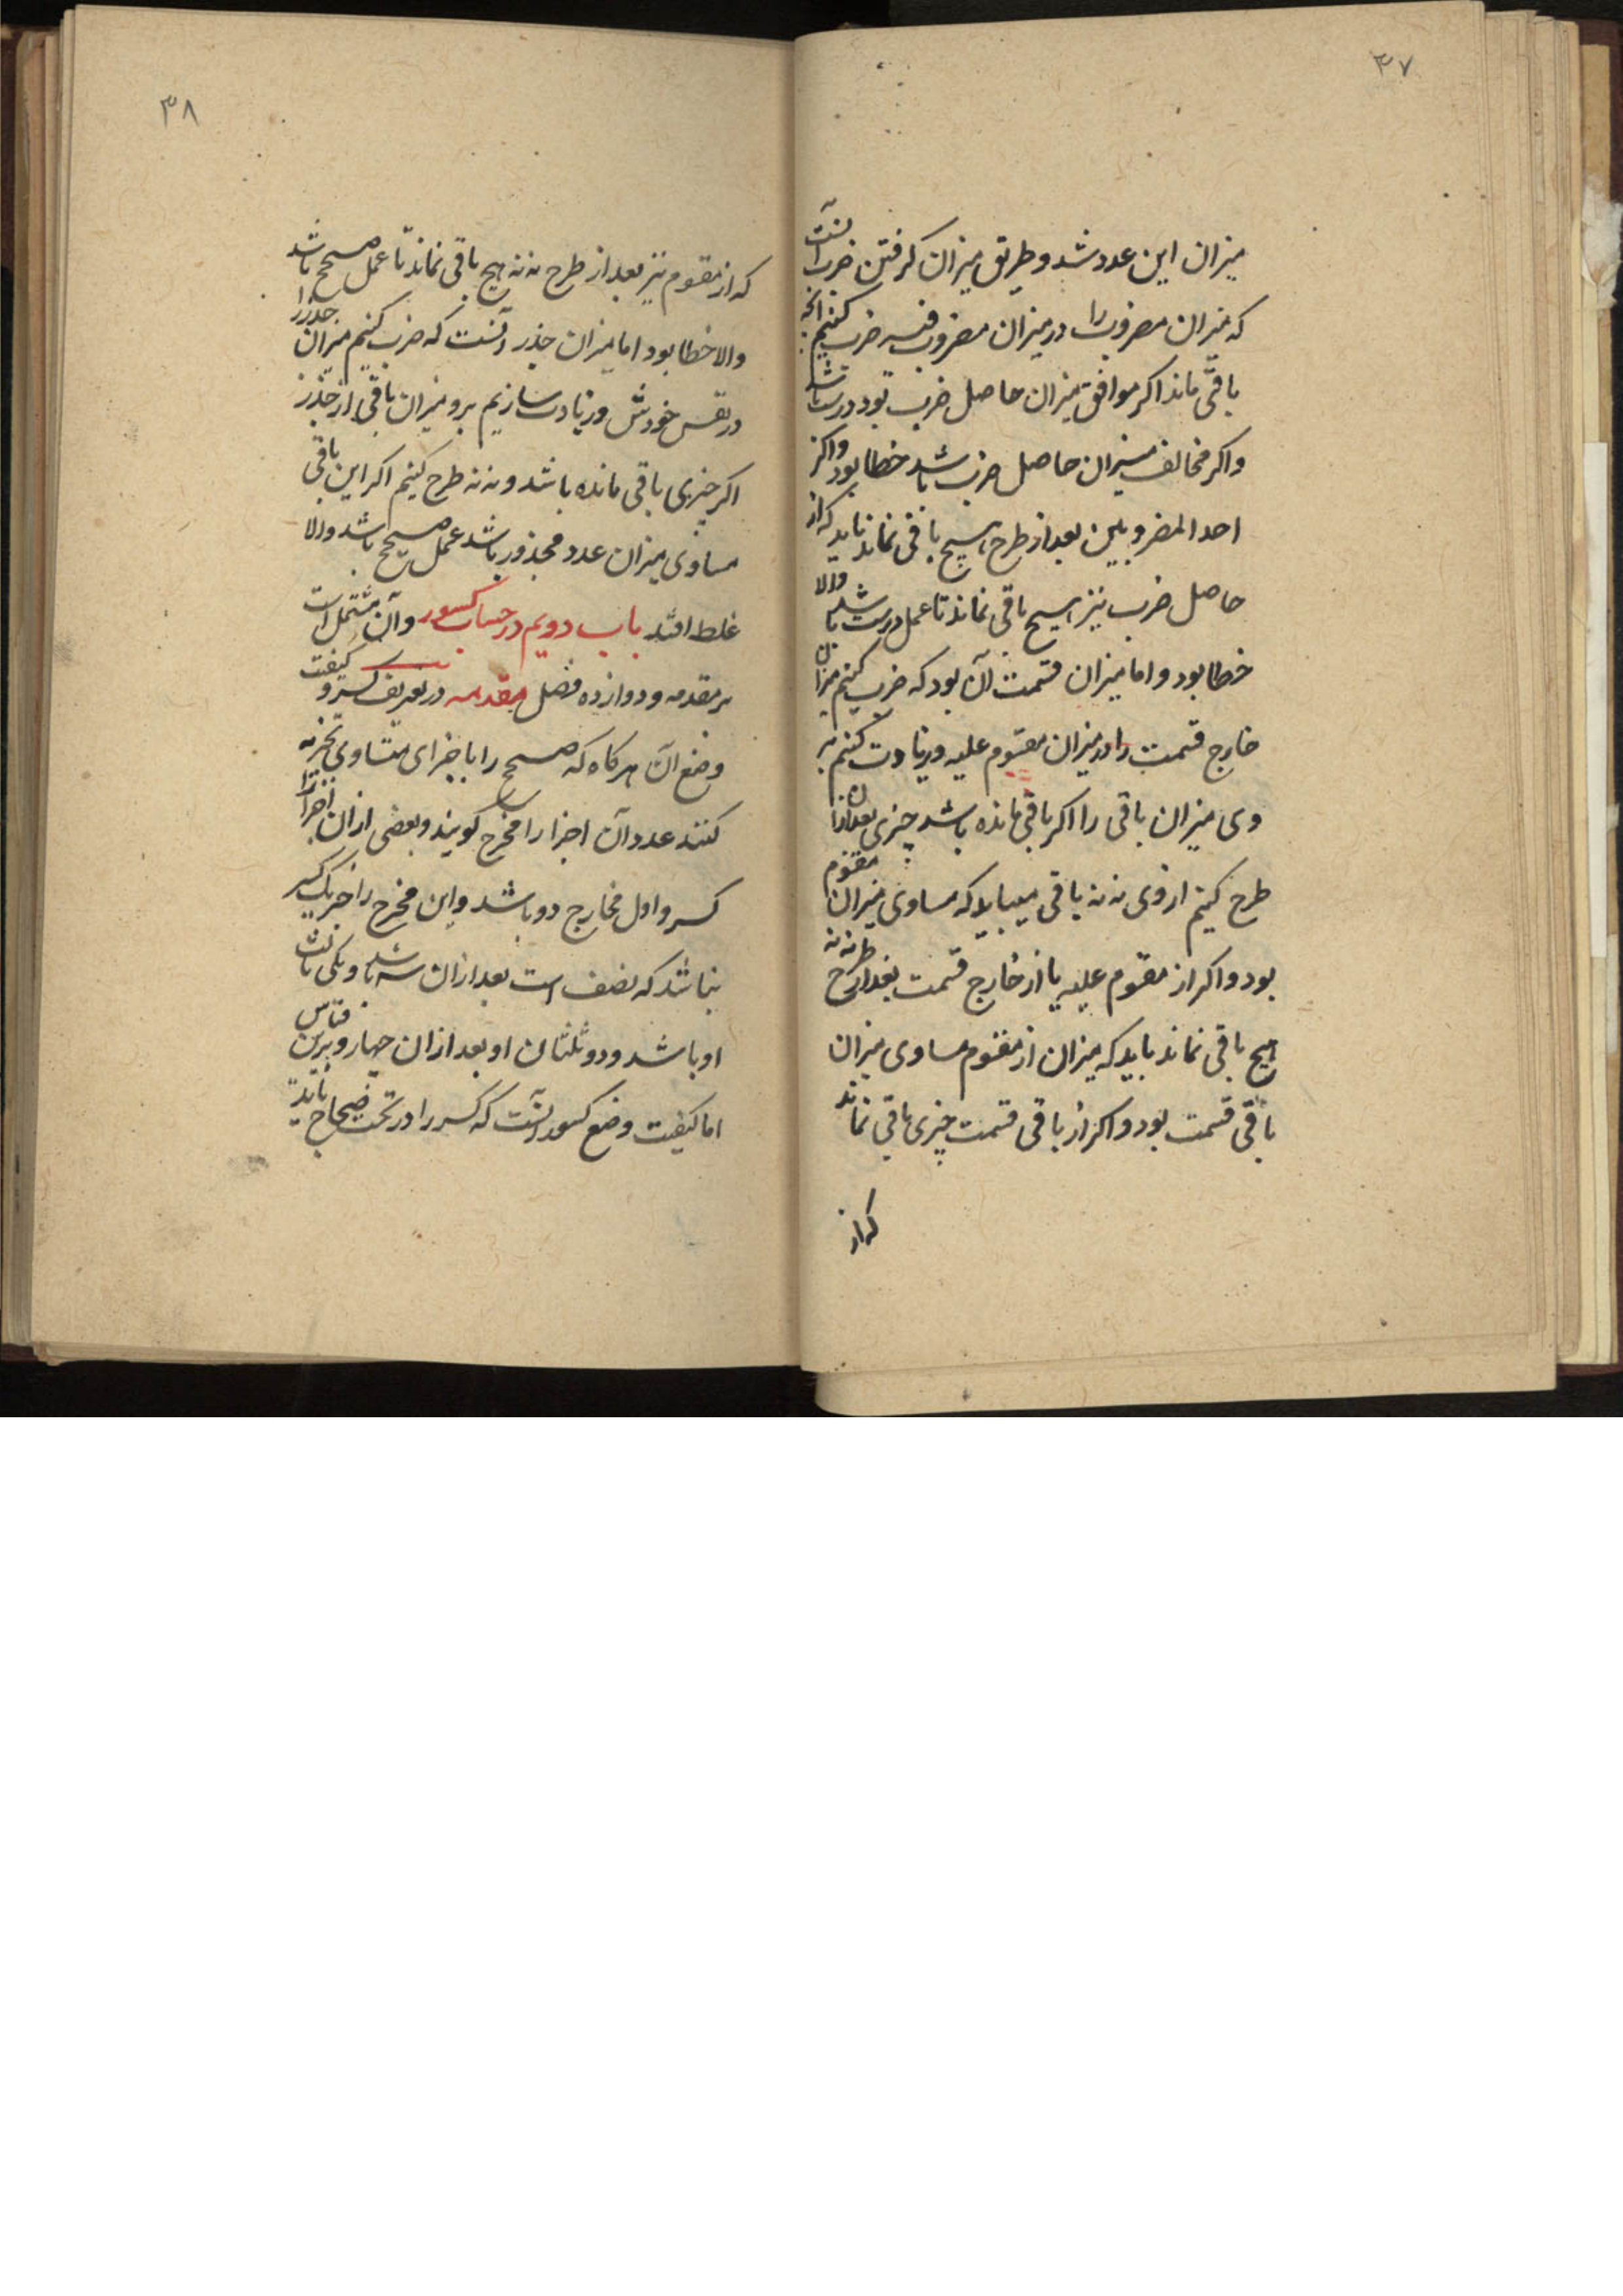 ۳۷
میزان این عدد شد و طریق میزان کرفتن ضرب آنست
که میزان مضروب را در میزان مضروب فیه ضرب کنیم آنچه
باقی ماند اکر موافق میزان حاصل ضرب بود درست باشد
واکر مخالف میزان حاصل ضرب باشد خطا بود واکر
احد المضروبین بعد از طرح هیچ باقی نماند باید که از
حاصل ضرب نیز هیچ باقی نماند تا عمل درست باشد والا
خطا بود و اما میزان قسمت آن بود که ضرب کنیم میزان
خارج قسمت را در میزان مقسوم علیه و زیادت کنیم بر
وی میزان باقی را اکر باقی مانده باشد چیزی بعد ازان
طرح کنیم از وی نه نه باقی میباید که مساوی میزان مقسوم
بود و اکر از مقسوم علیه یا از خارج قسمت بعد از طرح نه نه
هیچ باقی نماند باید که میزان از مقسوم مساوی میزان
باقی قسمت بود و اکر از باقی قسمت چیزی باقی نماند
که از
۳۸
که از مقسوم نیز بعد از طرح نه نه هیچ باقی نماند تا عمل صحیح باشد
والا خطا بود اما میزان جذر آنست که ضرب کنیم میزان جذر را
در نفس خودش و زیادت سازیم برو میزان باقی از جذر
اکر چیزی باقی مانده باشد و نه نه طرح کنیم اکر این باقی
مساوی میزان عدد مجذور باشد عمل صحیح باشد والا
غلط افتد باب دویم در حساب کسور و آن مشتمل است
بر مقدمه و دوازده فصل مقدمه در تعریف کسر و کیفیت
وضع آن هرکاه که صحیح را باجزای متساوی تجزیه
کنند عدد آن اجزا را مخرج کویند و بعضی ازان اجزا را
کسر و اول مخارج دو باشد و این مخرج را جز یک کسر
نباشد که نصف است بعد ازان سه باشد و یکی ثلث
او باشد و دو ثلثان او بعد ازان چهار و برین قیاس
اما کیفیت وضع کسور آنست که کسر را در تحت صحاح باید